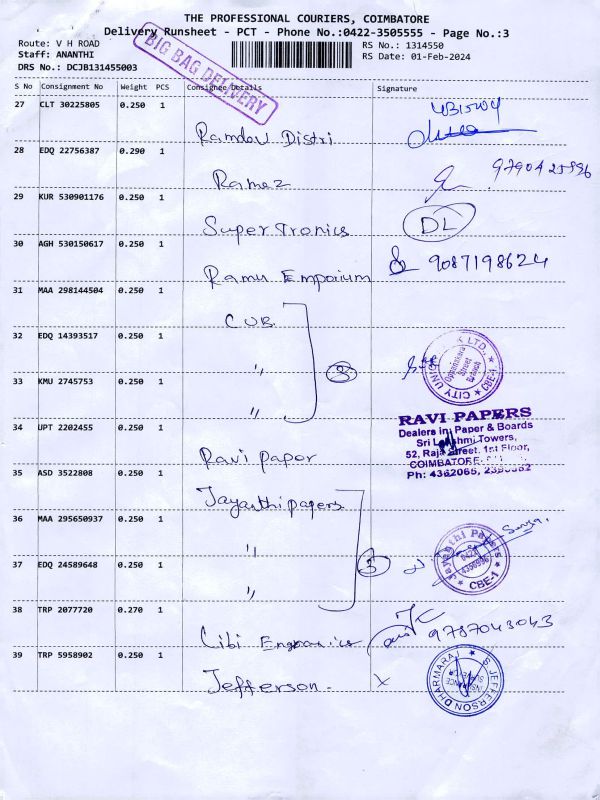 THE PROFESSIONAL COURIERS, COIMBATORE
Delivery Runsheet - PCT - Phone No.:0422-3505555 - Page No.:3
Route: V H ROAD
RS No.: 1314550
Staff: ANANTHI
RS Date: 01-Feb-2024
DRS No.: DCJB131455003
BIG BAG DELIVERY
S No Consignment No Weight PCS Consignee Details Signature
27 CLT 30225805 0.250 1
Ramdov Distri
28 EDQ 22756387 0.290 1
Ramez
29 KUR 530901176 0.250 1
Super Tronics DL
30 AGH 530150617 0.250 1
Ramu Emporium 9087198624
31 MAA 298144504 0.250 1
CUB.
32 EDQ 14393517 0.250 1
" 3
CITY UNION BANK LTD., CBE-1
Oppanakara Street Branch
33 KMU 2745753 0.250 1
"
34 UPT 2202455 0.250 1
Ravi papor
RAVI PAPERS
Dealers in: Paper & Boards
Sri Lakshmi Towers,
52, Raja Street, 1st Floor,
COIMBATORE
Ph: 4362065,
35 ASD 3522808 0.250 1
Jayanthi papers
36 MAA 295650937 0.250 1
"
37 EDQ 24589648 0.250 1
" 3
Jayanthi Papers CBE-1
0422 4390996
38 TRP 2077720 0.270 1
Cibi 9787043043
39 TRP 5958902 0.250 1
Jefferson. X
S JEFFERSON DHARMARAJ